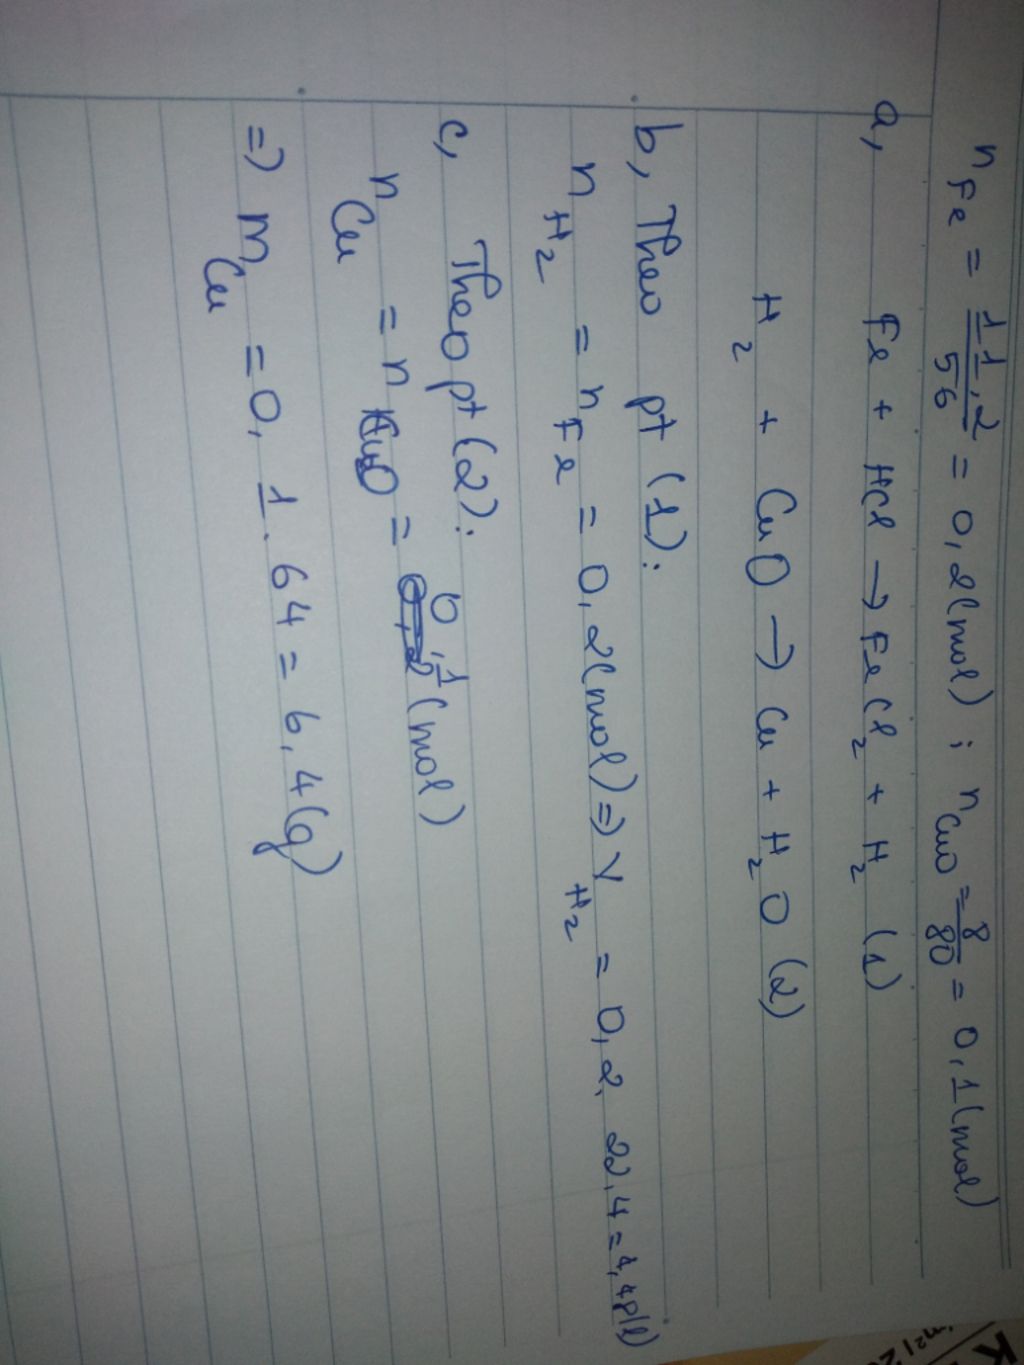 n Fe = 11,2/56 = 0,2(mol) ; n CuO = 8/80 = 0,1(mol)
a, Fe + HCl → FeCl2 + H2 (1)
H2 + CuO → Cu + H2O (2)
b, Theo pt (1):
n H2 = n Fe = 0,2(mol) => V H2 = 0,2. 22,4 = 4,48(l)
c, Theo pt (2):
n Cu = n CuO = 0,1 (mol)
=> m Cu = 0,1. 64 = 6,4(g)